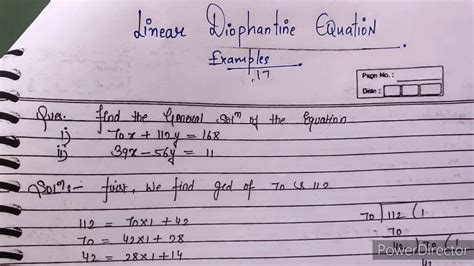 Linear Diophantine Equation
Examples
.17
Page No. :
Date :
Ques. find the General Solⁿ of the Equation
i) 70x + 112y = 168
ii) 39x - 56y = 11
Solⁿ:- first, We find gcd of 70 & 112
112 = 70x1 + 42
70 = 42x1 + 28
42 = 28x1 + 14
70 112 (1
70
42 70 (1
42
PowerDirector